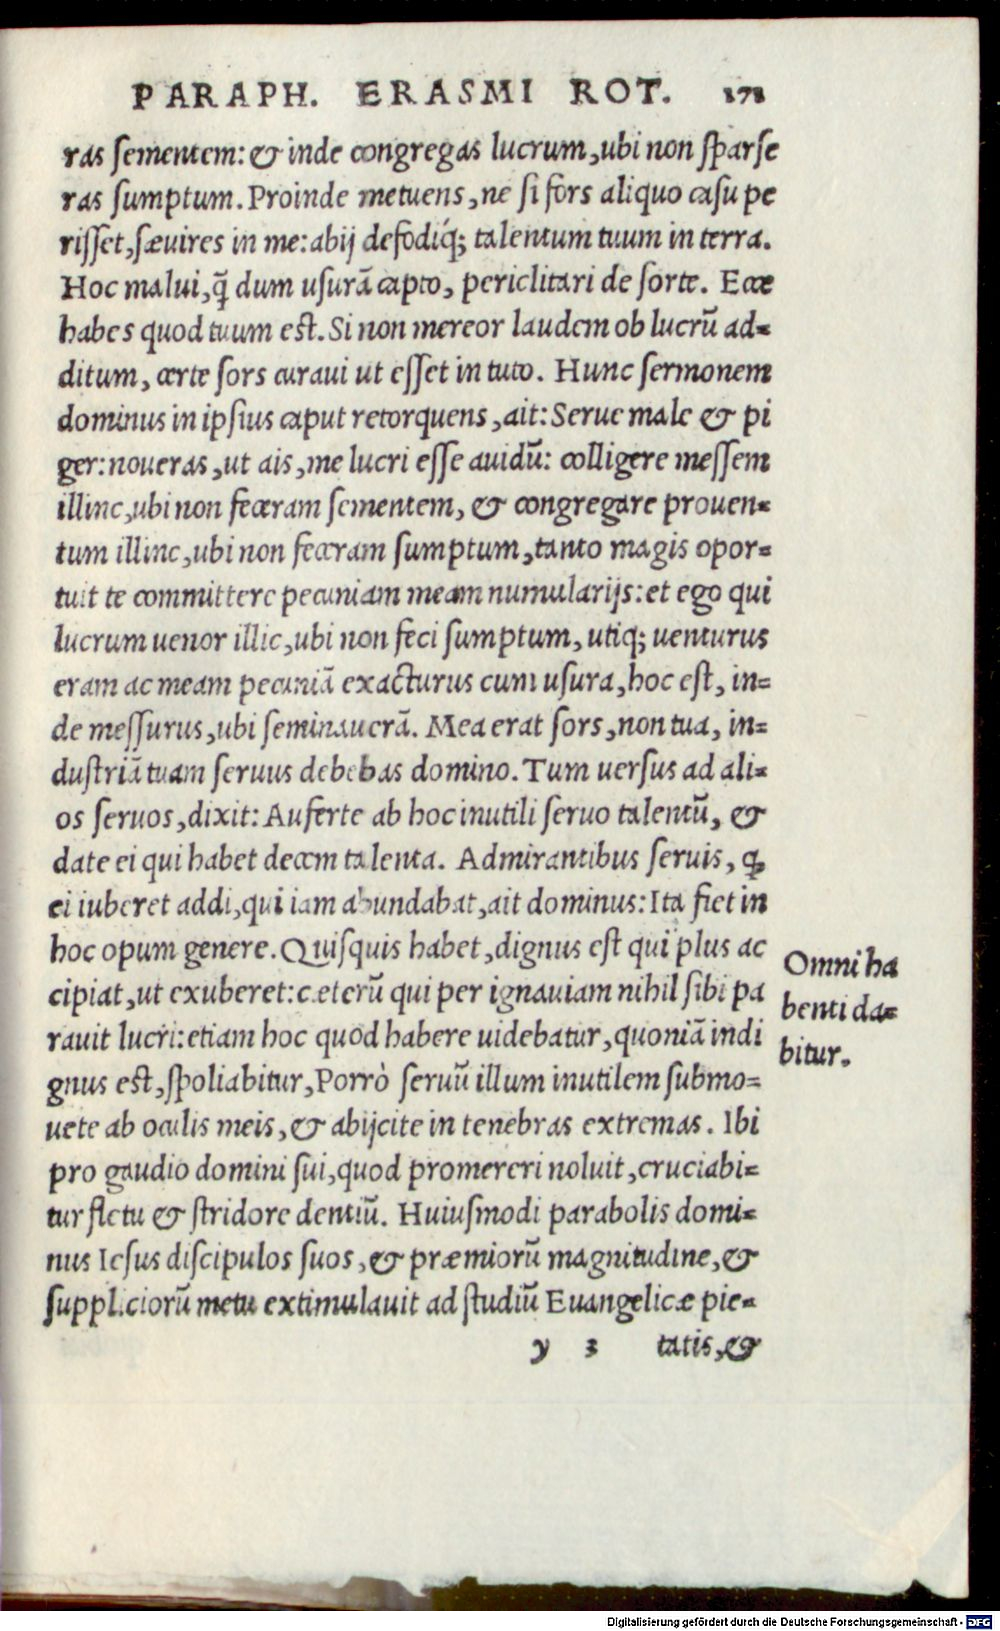 PARAPH. ERASMI ROT. 171
ras sementem: & inde congregas lucrum, ubi non sparse
ras sumptum. Proinde metuens, ne si fors aliquo casu pe
risset, sævires in me: abij defodiq́; talentum tuum in terra.
Hoc malui, q̃ dum usurã capto, periclitari de sorte. Ecce
habes quod tuum est. Si non mereor laudem ob lucrũ ad=
ditum, certe sors curaui ut esset in tuto. Hunc sermonem
dominus in ipsius caput retorquens, ait: Serue male & pi
ger: noueras, ut ais, me lucri esse auidũ: colligere messem
illinc, ubi non feceram sementem, & congregare prouen=
tum illinc, ubi non feceram sumptum, tanto magis opor=
tuit te committere pecuniam meam numularijs: et ego qui
lucrum uenor illic, ubi non feci sumptum, utiq; uenturus
eram ac meam pecuniã exacturus cum usura, hoc est, in=
de messurus, ubi seminauerã. Mea erat sors, non tua, in=
dustriã tuam seruus debebas domino. Tum uersus ad ali=
os seruos, dixit: Auferte ab hoc inutili seruo talentũ, &
date ei qui habet decem talenta. Admirantibus seruis, ꝙ
ei iuberet addi, qui iam abundabat, ait dominus: Ita fiet in
hoc opum genere. Quisquis habet, dignus est qui plus ac
cipiat, ut exuberet: cæterũ qui per ignauiam nihil sibi pa
rauit lucri: etiam hoc quod habere uidebatur, quoniã indi
gnus est, spoliabitur, Porrò seruũ illum inutilem submo=
uete ab oculis meis, & abijcite in tenebras extremas. Ibi
pro gaudio domini sui, quod promereri noluit, cruciabi=
tur fletu & stridore dentiũ. Huiusmodi parabolis domi=
nus Iesus discipulos suos, & præmiorũ magnitudine, &
suppliciorũ metu extimulauit ad studiũ Euangelicæ pie=
y 3 tatis, &
Omni ha
benti da=
bitur.
Digitalisierung gefördert durch die Deutsche Forschungsgemeinschaft - DFG